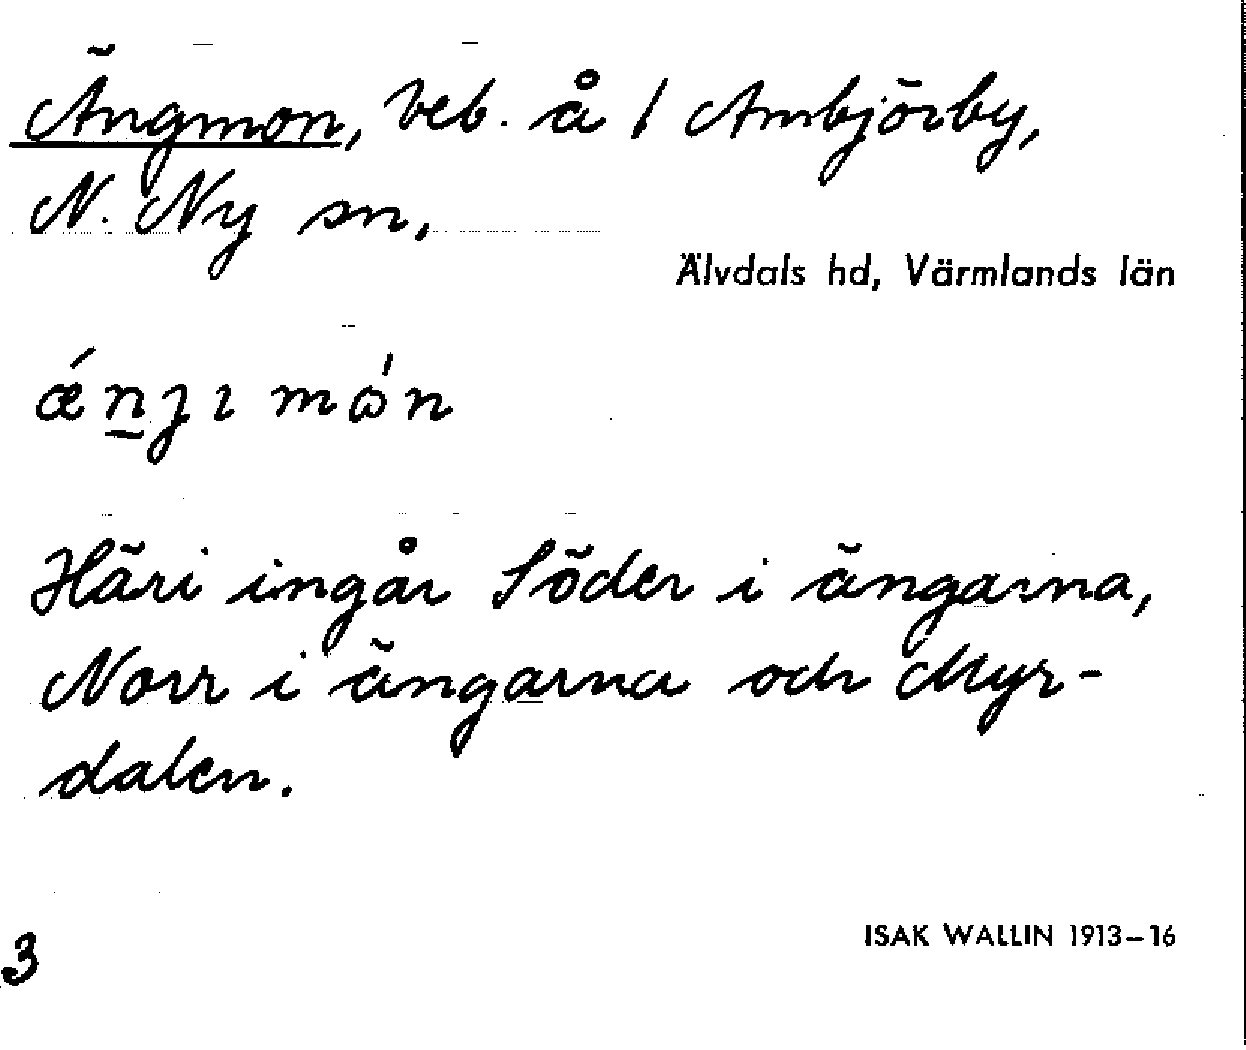 Ängmon, beb. å 1 Ambjörby,
N. Ny sn,
Älvdals hd, Värmlands län
Häri ingår Söder i ängarna,
Norr i ängarna och Myr-
dalen.
ISAK WALLIN 1913–16
3